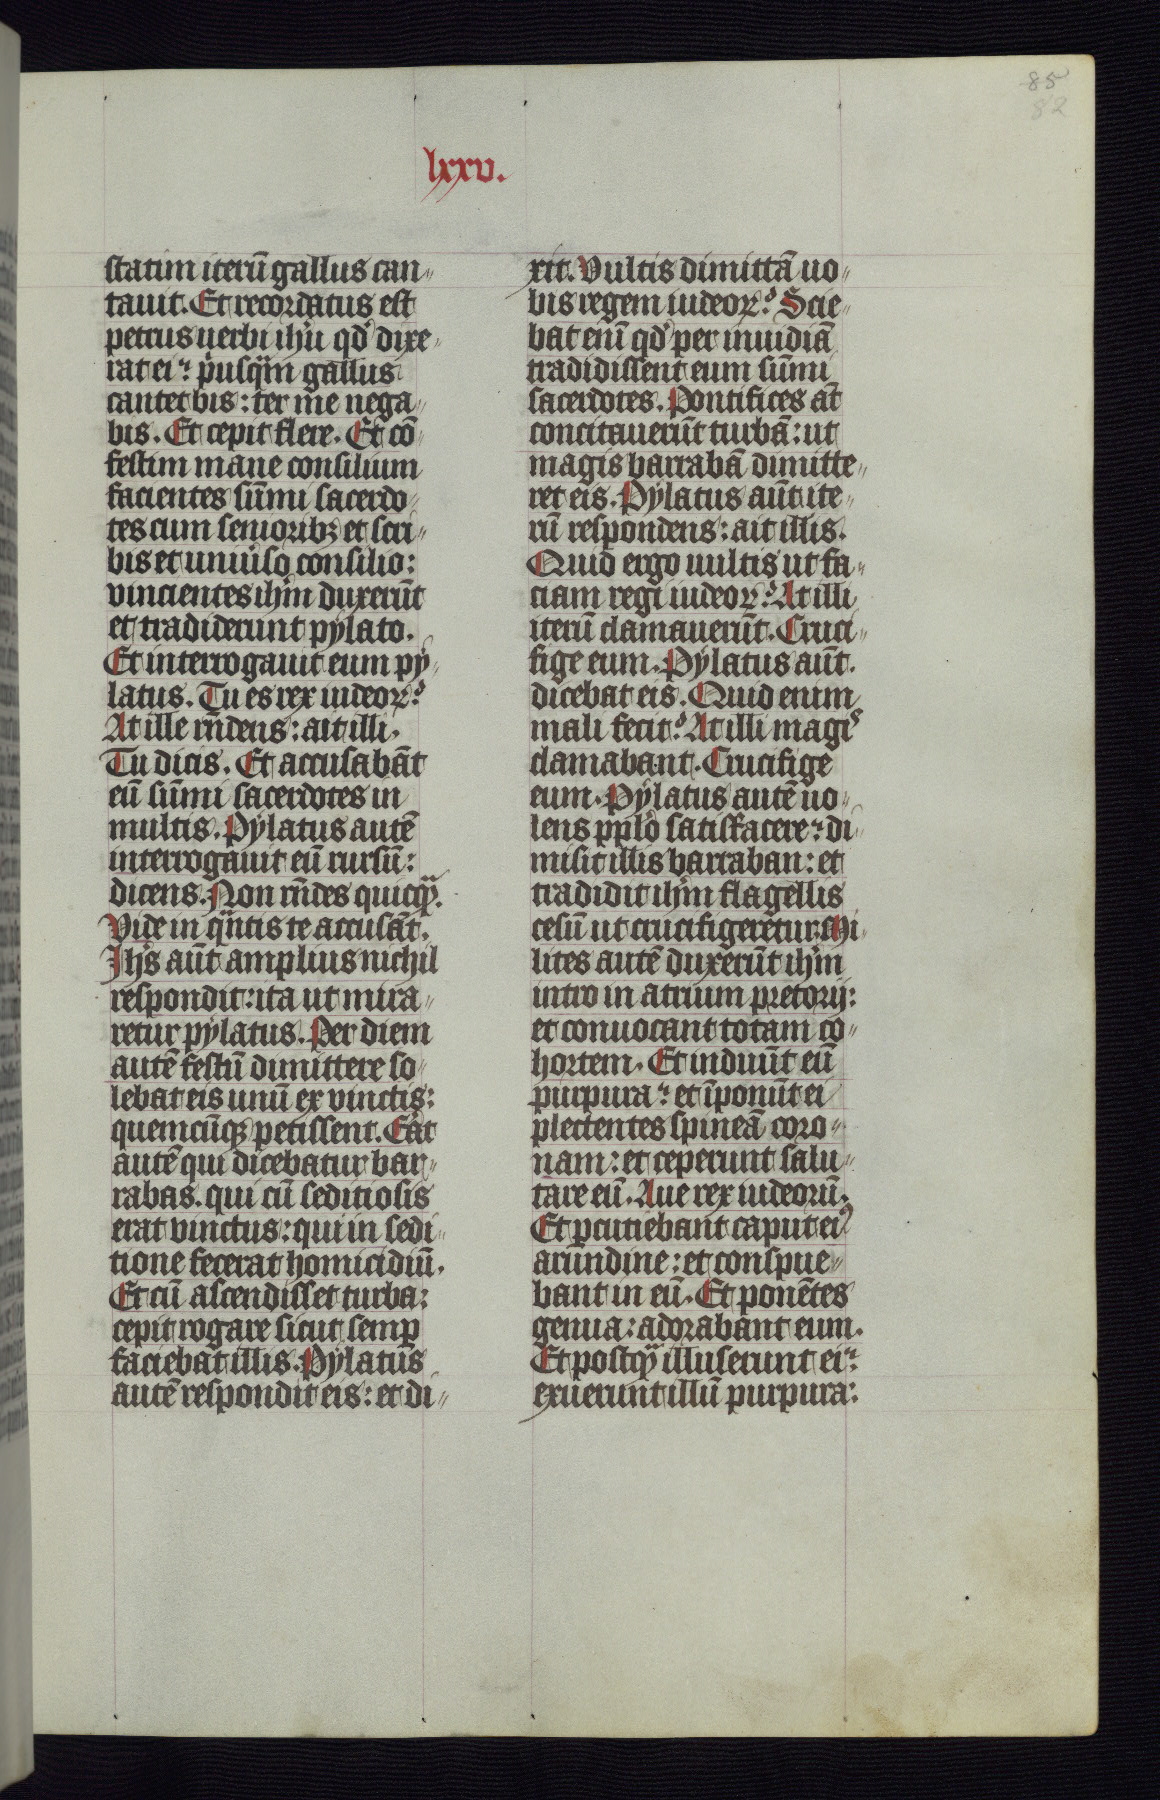 85
82
lxxv.
statim iterū gallus can〃
tauit. Et recordatus est
petrus uerbi ihū qd' dixe〃
rat ei: pusq̄m gallus
cantet bis: ter me nega〃
bis. Et cepit flere. Et cō〃
festim mane consilium
facientes sūmi sacerdo〃
tes cum senioribꝫ et scri〃
bis et uniu'so consilio:
vincientes ihm̄ duxerūt
et tradiderunt pylato.
Et interrogauit eum py〃
latus. Tu es rex iudeoꝝ?
At ille rn̄dens: ait illi.
Tu dicis. Et accusabāt
eū sūmi sacerdotes in
multis. Pylatus autē
interrogauit eū rursū:
dicens. Non rn̄des quicq̄.
Vide in qn̄tis te accusāt.
Ihs̄ aūt amplius nichil
respondit: ita ut mira〃
retur pylatus. Per diem
autē festū dimittere so〃
lebat eis unū ex vinctis:
quemcūqꝫ petissent. Eat
autē qui dicebatur bar〃
rabas. qui cū seditiosis
erat vinctus: qui in sedi〃
tione fecerat homicidiū.
Et cū ascendisset turba:
cepit rogare sicut semꝑ
faciebat illis. Pylatus
autē respondit eis: et di〃
xit. Vultis dimittā uo〃
bis regem iudeoꝝ? Scie〃
bat enī qd' per inuidiā
tradidissent eum sūmi
sacerdotes. Pontifices āt
concitauerūt turbā: ut
magis barrabā dimitte〃
ret eis. Pylatus aūt ite〃
rū respondens: ait illis.
Quid ergo uultis ut fa〃
ciam regi iudeoꝝ? At illi
iterū clamauerūt. Cruci〃
fige eum. Pylatus aūt.
dicebat eis. Quid enim
mali fecit? At illi magis
clamabant. Crucifige
eum. Pylatus autē uo〃
lens pplō satisfacere: di〃
misit illis barraban: et
tradidit ihm̄ flagellis
cesū ut crucifigeretur. Mi〃
lites autē duxerūt ihm̄
intro in atrium pretorij:
et conuocant totam co〃
hortem. Et induūt eū
purpura: et īponūt ei
plectentes spineā coro〃
nam: et ceperunt salu〃
tare eū. Aue rex iudeorū.
Et ꝑcutiebant caput eiꝰ
arundine: et conspue〃
bant in eū. Et ponētes
genua: adorabant eum.
Et postq̄ illuserunt ei:
exuerunt illū purpura: